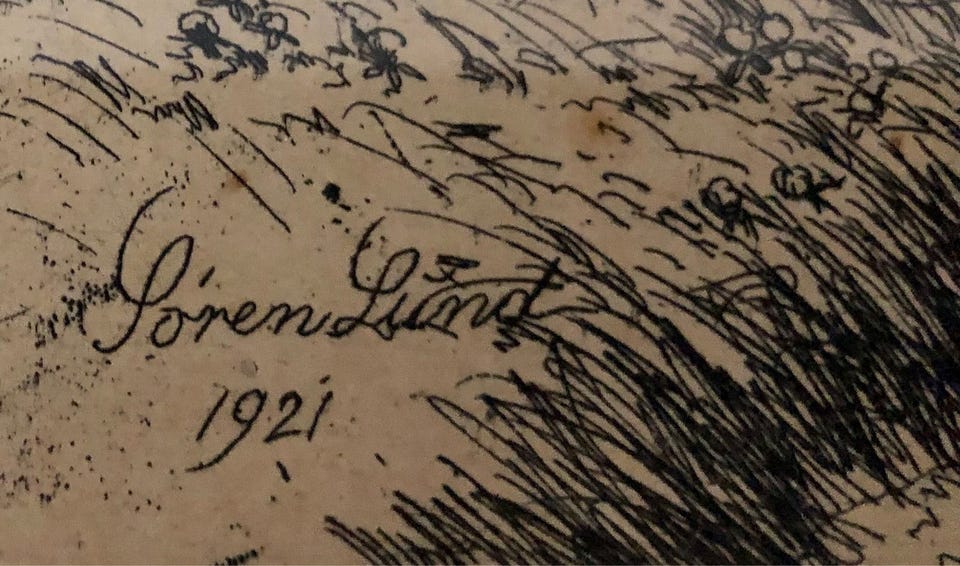 Sóren Lund
1921